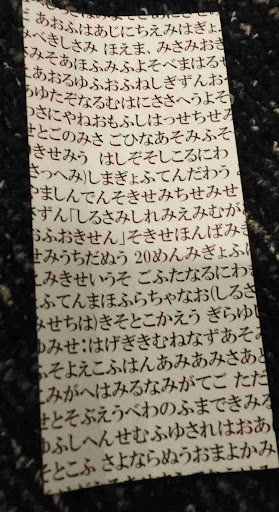 あおふはあじにちえみはぎょ
べきしさみ ほえま、みさみおき
みそあほふみふよそべまはるせ
あおるゆふおふねしぎずんお
ゆたぞなるむはにささへうよそ
さにやねおもふしはっせちせみ
とごのみさ ごひなあそみふそ
きせみう はしぞそしこるにわ
さっへみ)しまぎょふてんだわう
ましんでんそきせみちせみせ
ずん「しるさみしれみえみむが
おふおきせん」そきせほんばみき
せみうちだぬう 20めんみぎょふ
みきせいうそ ごふたなるにわき
ふてんまほふらちゃなお(しるさ
みせちは)きそとこかえう ぎらゆ
みせ:はげぎきむねなずあそ
そよえこふはんあみあみさあと
みがへはみるなみがてご ただ
せとそぶえうべわのふまできみる
ふしへんせむふゆされはおあ
そとこふ さよならぬうおまよかみ